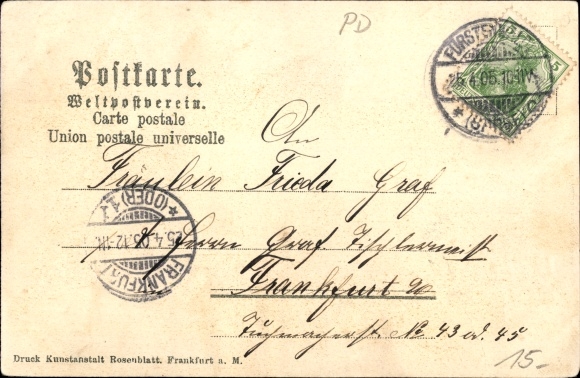 PD
Postkarte.
Weltpostverein.
Carte postale
Union postale universelle
FÜRSTEN
25.4.05.10-11V.
(SPREE)
5
An
Fräulein Frieda Graf
Herrn Graf Tischlermeist
Frankfurt a/o
Tuchmacherstr. No 43 od. 45
FRANKFURT
25.4.05.12-1N.
* (ODER) 1
Druck Kunstanstalt Rosenblatt. Frankfurt a. M.
15.-